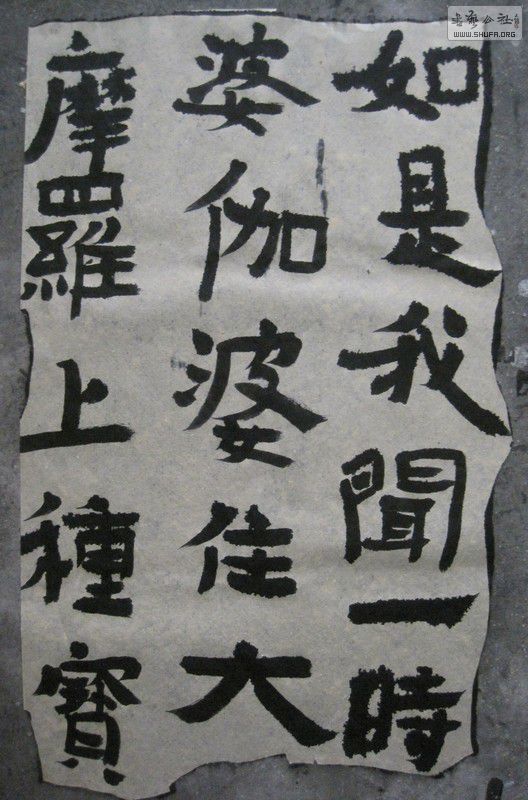 如是我聞一時
婆伽婆住大
摩羅上種寶
書藝公社
WWW.SHUFA.ORG